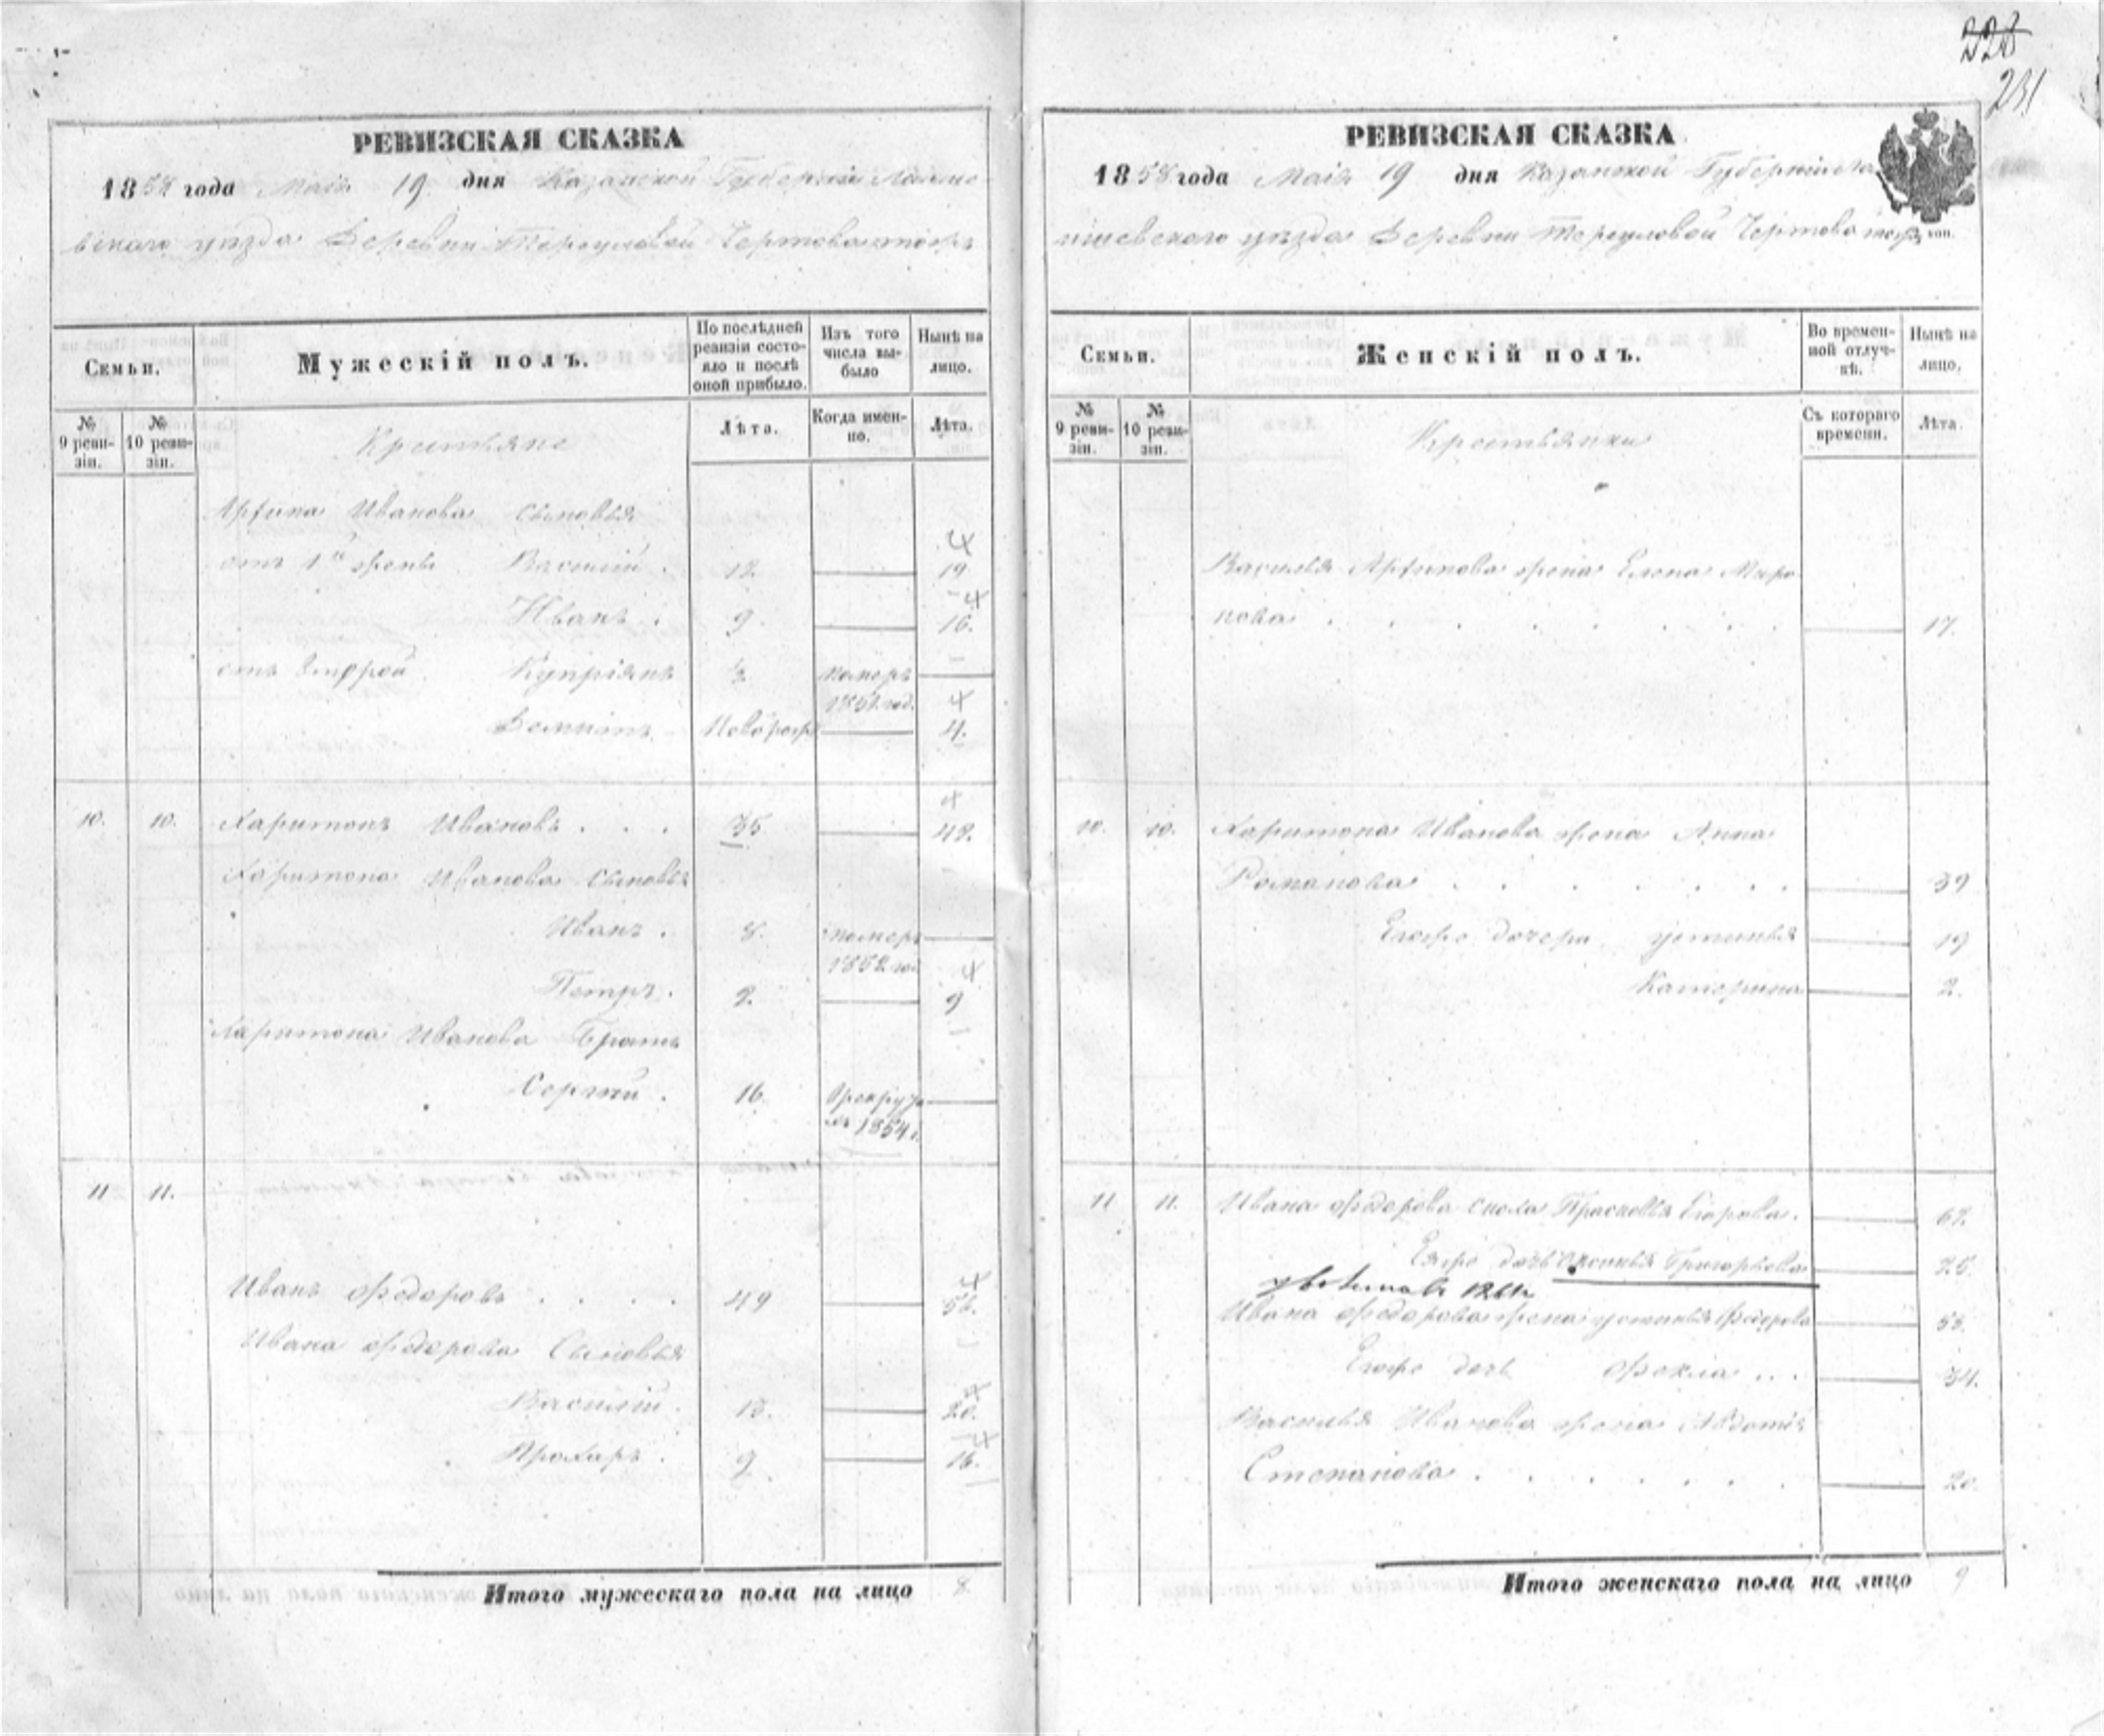 228
231
РЕВИЗСКАЯ СКАЗКА
1858 года Маія 19 дня Казанской Губерніи Лаише-
вскаго уѣзда Деревни
Семьи.
Мужескій полъ.
По послѣдней ревизіи состо-яло и послѣ оной прибыло.
Изъ того числа вы-было
Нынѣ на лицо.
№ 9 реви-зіи.
№ 10 реви-зіи.
Крестьяне
Лѣта.
Когда имен-но.
Лѣта.
Ивановы сыновья
отъ 1й жены Василій . 12 19
Иванъ . 9 16.
отъ второй Купріянъ померъ
4.
10. 10. Харитонъ Ивановъ . . . 35 42.
Харитона Иванова сыновья
Иванъ . 8. померъ
1852 год
Петръ . 2. 9
Харитона Иванова Братъ
Сергѣй . 16.
1854 г.
11 11.
Иванъ Федоровъ . . . . 49 56.
Ивана Федорова Сыновья
Василій . 13. 20.
Прохаръ . 9 16.
Итого мужескаго пола на лицо 8
РЕВИЗСКАЯ СКАЗКА
1858 года Маія 19 дня Казанской Губерніи Ла
ишевскаго уѣзда Деревни
коп.
Семьи.
Женскій полъ.
Во времен-ной отлуч-кѣ.
Нынѣ на лицо.
№ 9 реви-зіи.
№ 10 реви-зіи.
Крестьянки
Съ котораго времени.
Лѣта.
Василья жена Елена Миро
нова . . . . . . . 17.
10. 10. Харитона Иванова жена Анна
Романова . . . . . . 39
Егоже дочери Устинья 19
Катерина 2.
11 11. Ивана Федорова Прасковья Егорова . 67.
Егоже дочь Григорьева 25.
Ивана Федорова жена Устинья Федорова 53.
Егоже дочь Фекла . . . 34.
Василья Иванова жена Авдотья
Степанова . . . . . . 20.
Итого женскаго пола на лицо 9